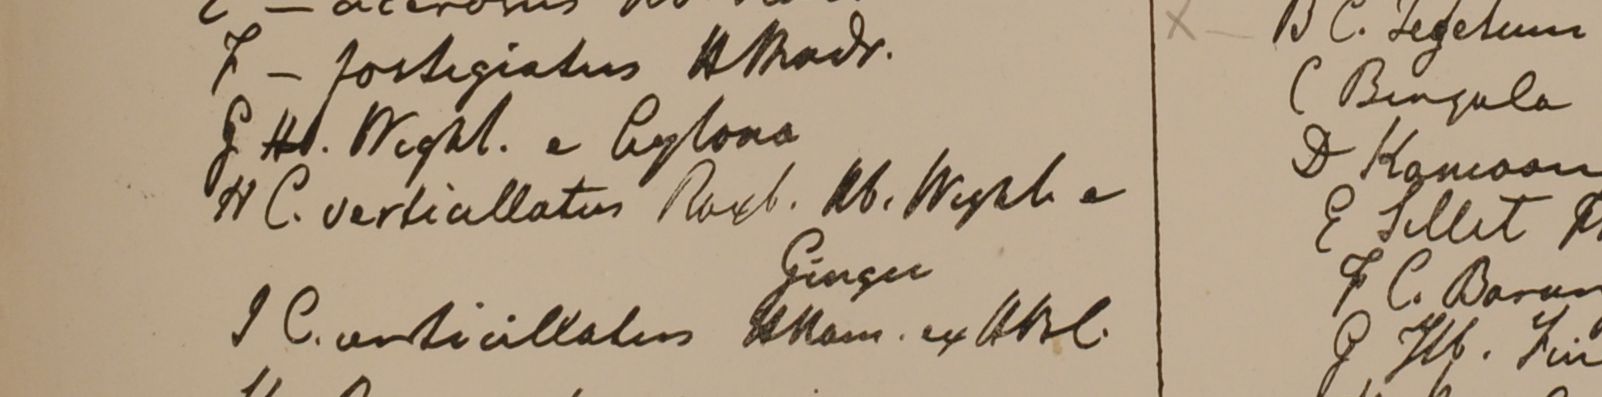 E – acerosus
F – fastigiatus H Madr.
G Hb. Wight. e Ceylona
H C. verticillatus Roxb. Hb. Wight. e
Gingee
I C. verticillatus HHam. ex HBC.
X – B C. Tegetum
C Bengala
D Kamaon
E Sillet
F C.
G Hb. Fin